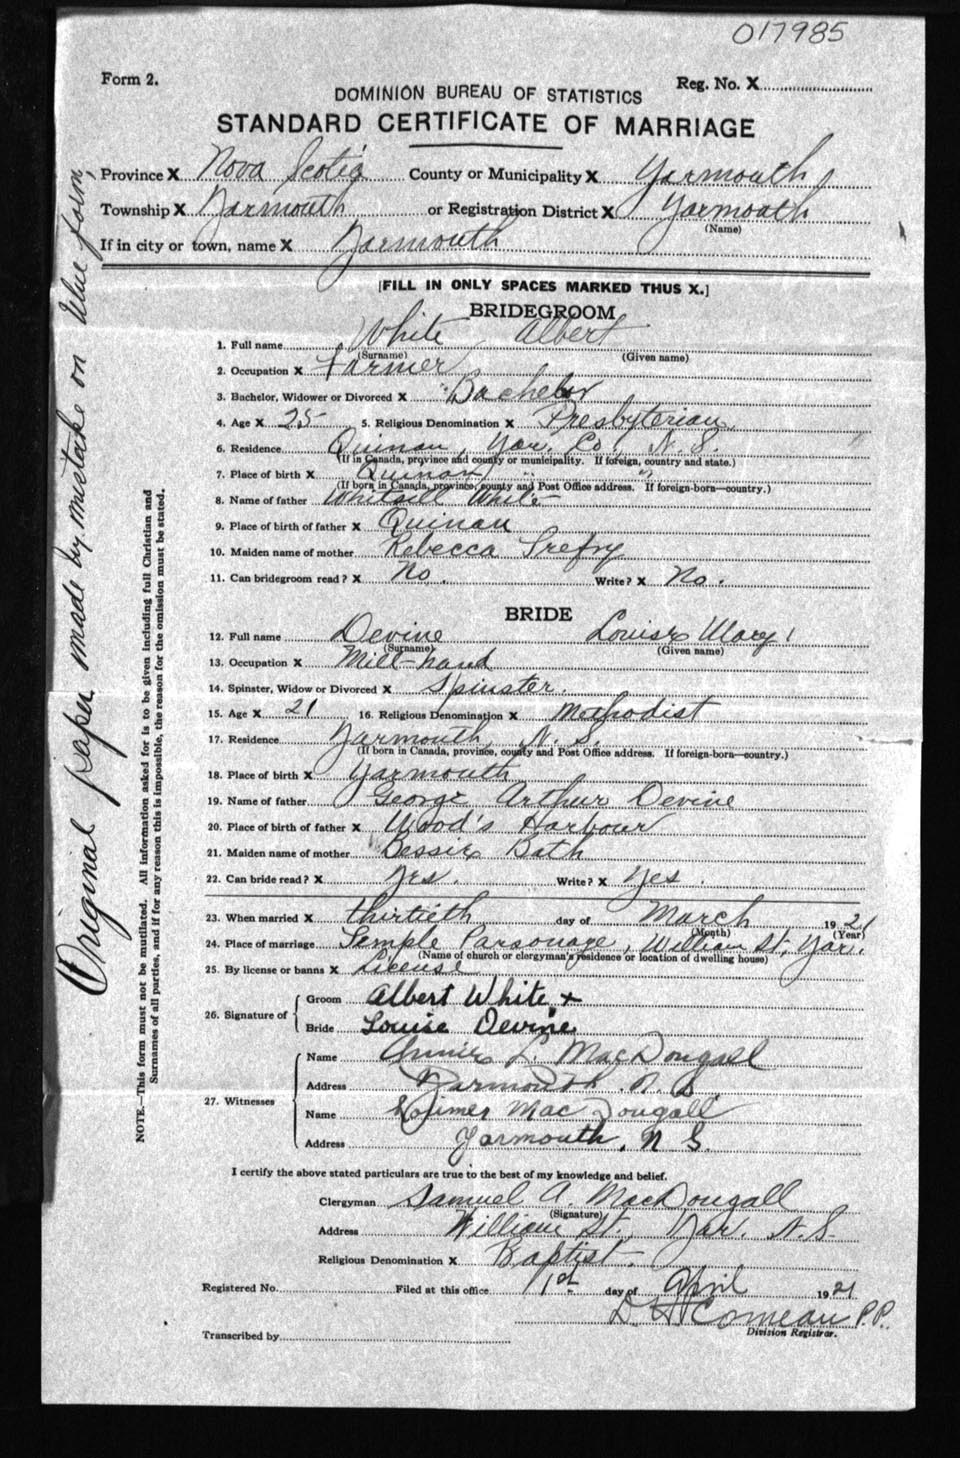 017985
Form 2.
Reg. No. X
DOMINION BUREAU OF STATISTICS
STANDARD CERTIFICATE OF MARRIAGE
Province X Nova Scotia County or Municipality X Yarmouth
Township X Yarmouth or Registration District X Yarmouth
(Name)
If in city or town, name X Yarmouth
[FILL IN ONLY SPACES MARKED THUS X.]
BRIDEGROOM
1. Full name White Albert
(Surname) (Given name)
2. Occupation X Farmer
3. Bachelor, Widower or Divorced X Bachelor
4. Age X 25 5. Religious Denomination X Presbyterian
6. Residence Quinan, Yar. Co, N.S.
(If in Canada, province and county or municipality. If foreign, country and state.)
7. Place of birth X Quinan " "
(If born in Canada, province, county and Post Office address. If foreign-born—country.)
8. Name of father White
9. Place of birth of father X Quinan
10. Maiden name of mother Rebecca Trefry
11. Can bridegroom read? X No. Write? X No.
BRIDE
12. Full name Devine Louise Mary
(Surname) (Given name)
13. Occupation X Mill-hand
14. Spinster, Widow or Divorced X Spinster.
15. Age X 21 16. Religious Denomination X Methodist
17. Residence Yarmouth, N.S.
(If born in Canada, province, county and Post Office address. If foreign-born—country.)
18. Place of birth X Yarmouth
19. Name of father George Arthur Devine
20. Place of birth of father X Wood's Harbour
21. Maiden name of mother Bessie Bath
22. Can bride read? X Yes. Write? X Yes.
23. When married X thirtieth day of March 1921
(Month) (Year)
24. Place of marriage Temple Parsonage, William St, Yar.
(Name of church or clergyman's residence or location of dwelling house)
25. By license or banns X License
26. Signature of
Groom Albert White x
Bride Louise Devine
27. Witnesses
Name Annie L. MacDougall
Address Yarmouth. N. S.
Name Lorimer MacDougall
Address Yarmouth, N S.
I certify the above stated particulars are true to the best of my knowledge and belief.
Clergyman Samuel A. MacDougall
(Signature)
Address William St., Yar. N.S.
Religious Denomination X Baptist.
Registered No. Filed at this office 1st day of April 1921
D. H. Comeau P.P.
Division Registrar.
Transcribed by
NOTE.—This form must not be mutilated. All information asked for is to be given including full Christian and
Surnames of all parties, and if for any reason this is impossible, the reason for the omission must be stated.
Original paper made by mistake on blue form,